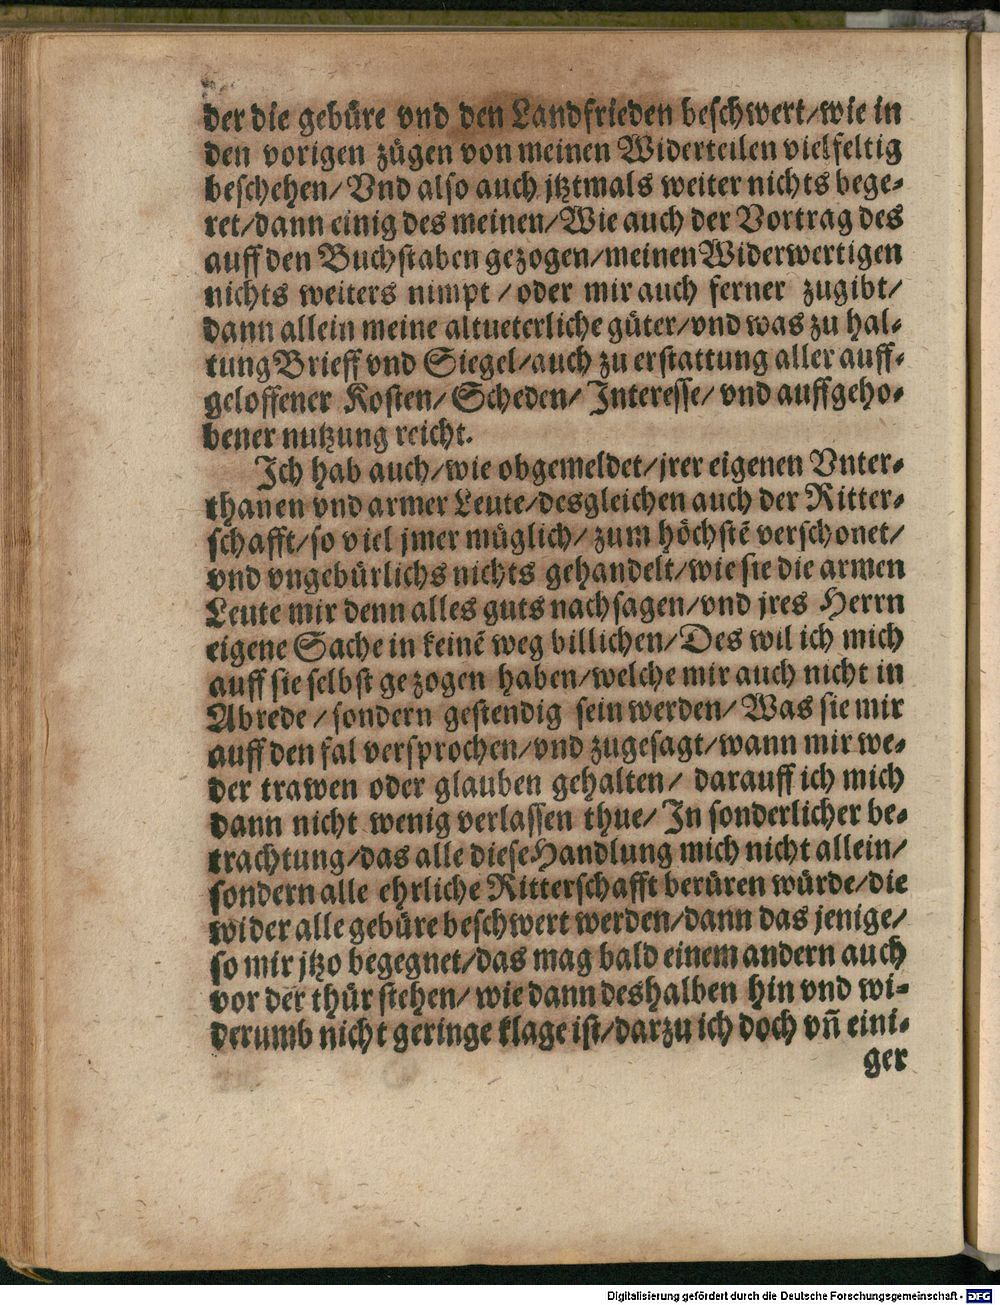 der die gebüre vnd den Landfrieden beschwert/wie in
den vorigen zügen von meinen Widerteilen vielfeltig
beschehen/ Vnd also auch jtztmals weiter nichts bege-
ret/dann einig des meinen/Wie auch der Vortrag des
auff den Buchstaben gezogen/meinen Widerwertigen
nichts weiters nimpt /oder mir auch ferner zugibt/
dann allein meine altueterliche güter/vnd was zu hal-
tung Brieff vnd Siegel/auch zu erstattung aller auff-
geloffener Kosten/ Scheden/ Interesse/ vnd auffgeho-
bener nutzung reicht.
Ich hab auch/wie obgemeldet/jrer eigenen Vnter-
thanen vnd armer Leute/desgleichen auch der Ritter-
schafft/so viel jmer müglich/ zum höchstē verschonet/
vnd vngebürlichs nichts gehandelt/wie sie die armen
Leute mir denn alles guts nachsagen/vnd jres Herrn
eigene Sache in keinē weg billichen/Des wil ich mich
auff sie selbst gezogen haben/welche mir auch nicht in
Abrede /sondern gestendig sein werden/ Was sie mir
auff den fal versprochen/vnd zugesagt/wann mir we-
der trawen oder glauben gehalten/ darauff ich mich
dann nicht wenig verlassen thue/ In sonderlicher be-
trachtung/das alle diese Handlung mich nicht allein/
sondern alle ehrliche Ritterschafft berüren würde/die
wider alle gebüre beschwert werden/dann das jenige/
so mir jtzo begegnet/das mag bald einem andern auch
vor der thür stehen/ wie dann deshalben hin vnd wi-
derumb nicht geringe klage ist/darzu ich doch vn̄ eini-
ger
Digitalisierung gefördert durch die Deutsche Forschungsgemeinschaft - DFG